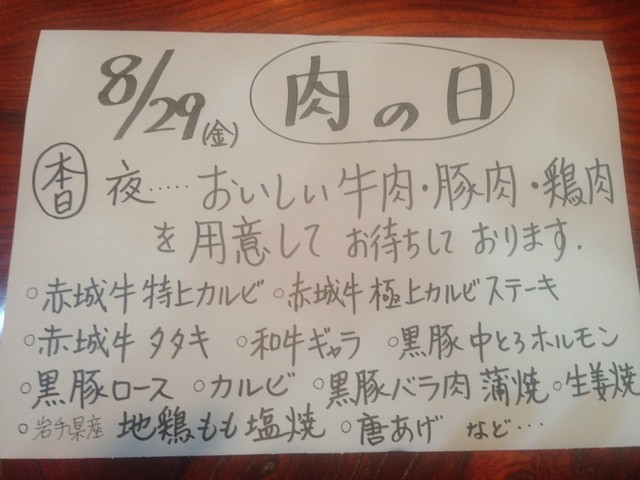 8/29(金) 肉の日
本日 夜‥‥‥おいしい牛肉・豚肉・鶏肉
を用意して お待ちして おります.
○赤城牛特上カルビ ○赤城牛極上カルビステーキ
○赤城牛タタキ ○和牛ギャラ ○黒豚中とろホルモン
○黒豚ロース ○カルビ ○黒豚バラ肉 蒲焼 ○生姜焼
○岩手県産 地鶏もも塩焼 ○唐あげ など‥‥